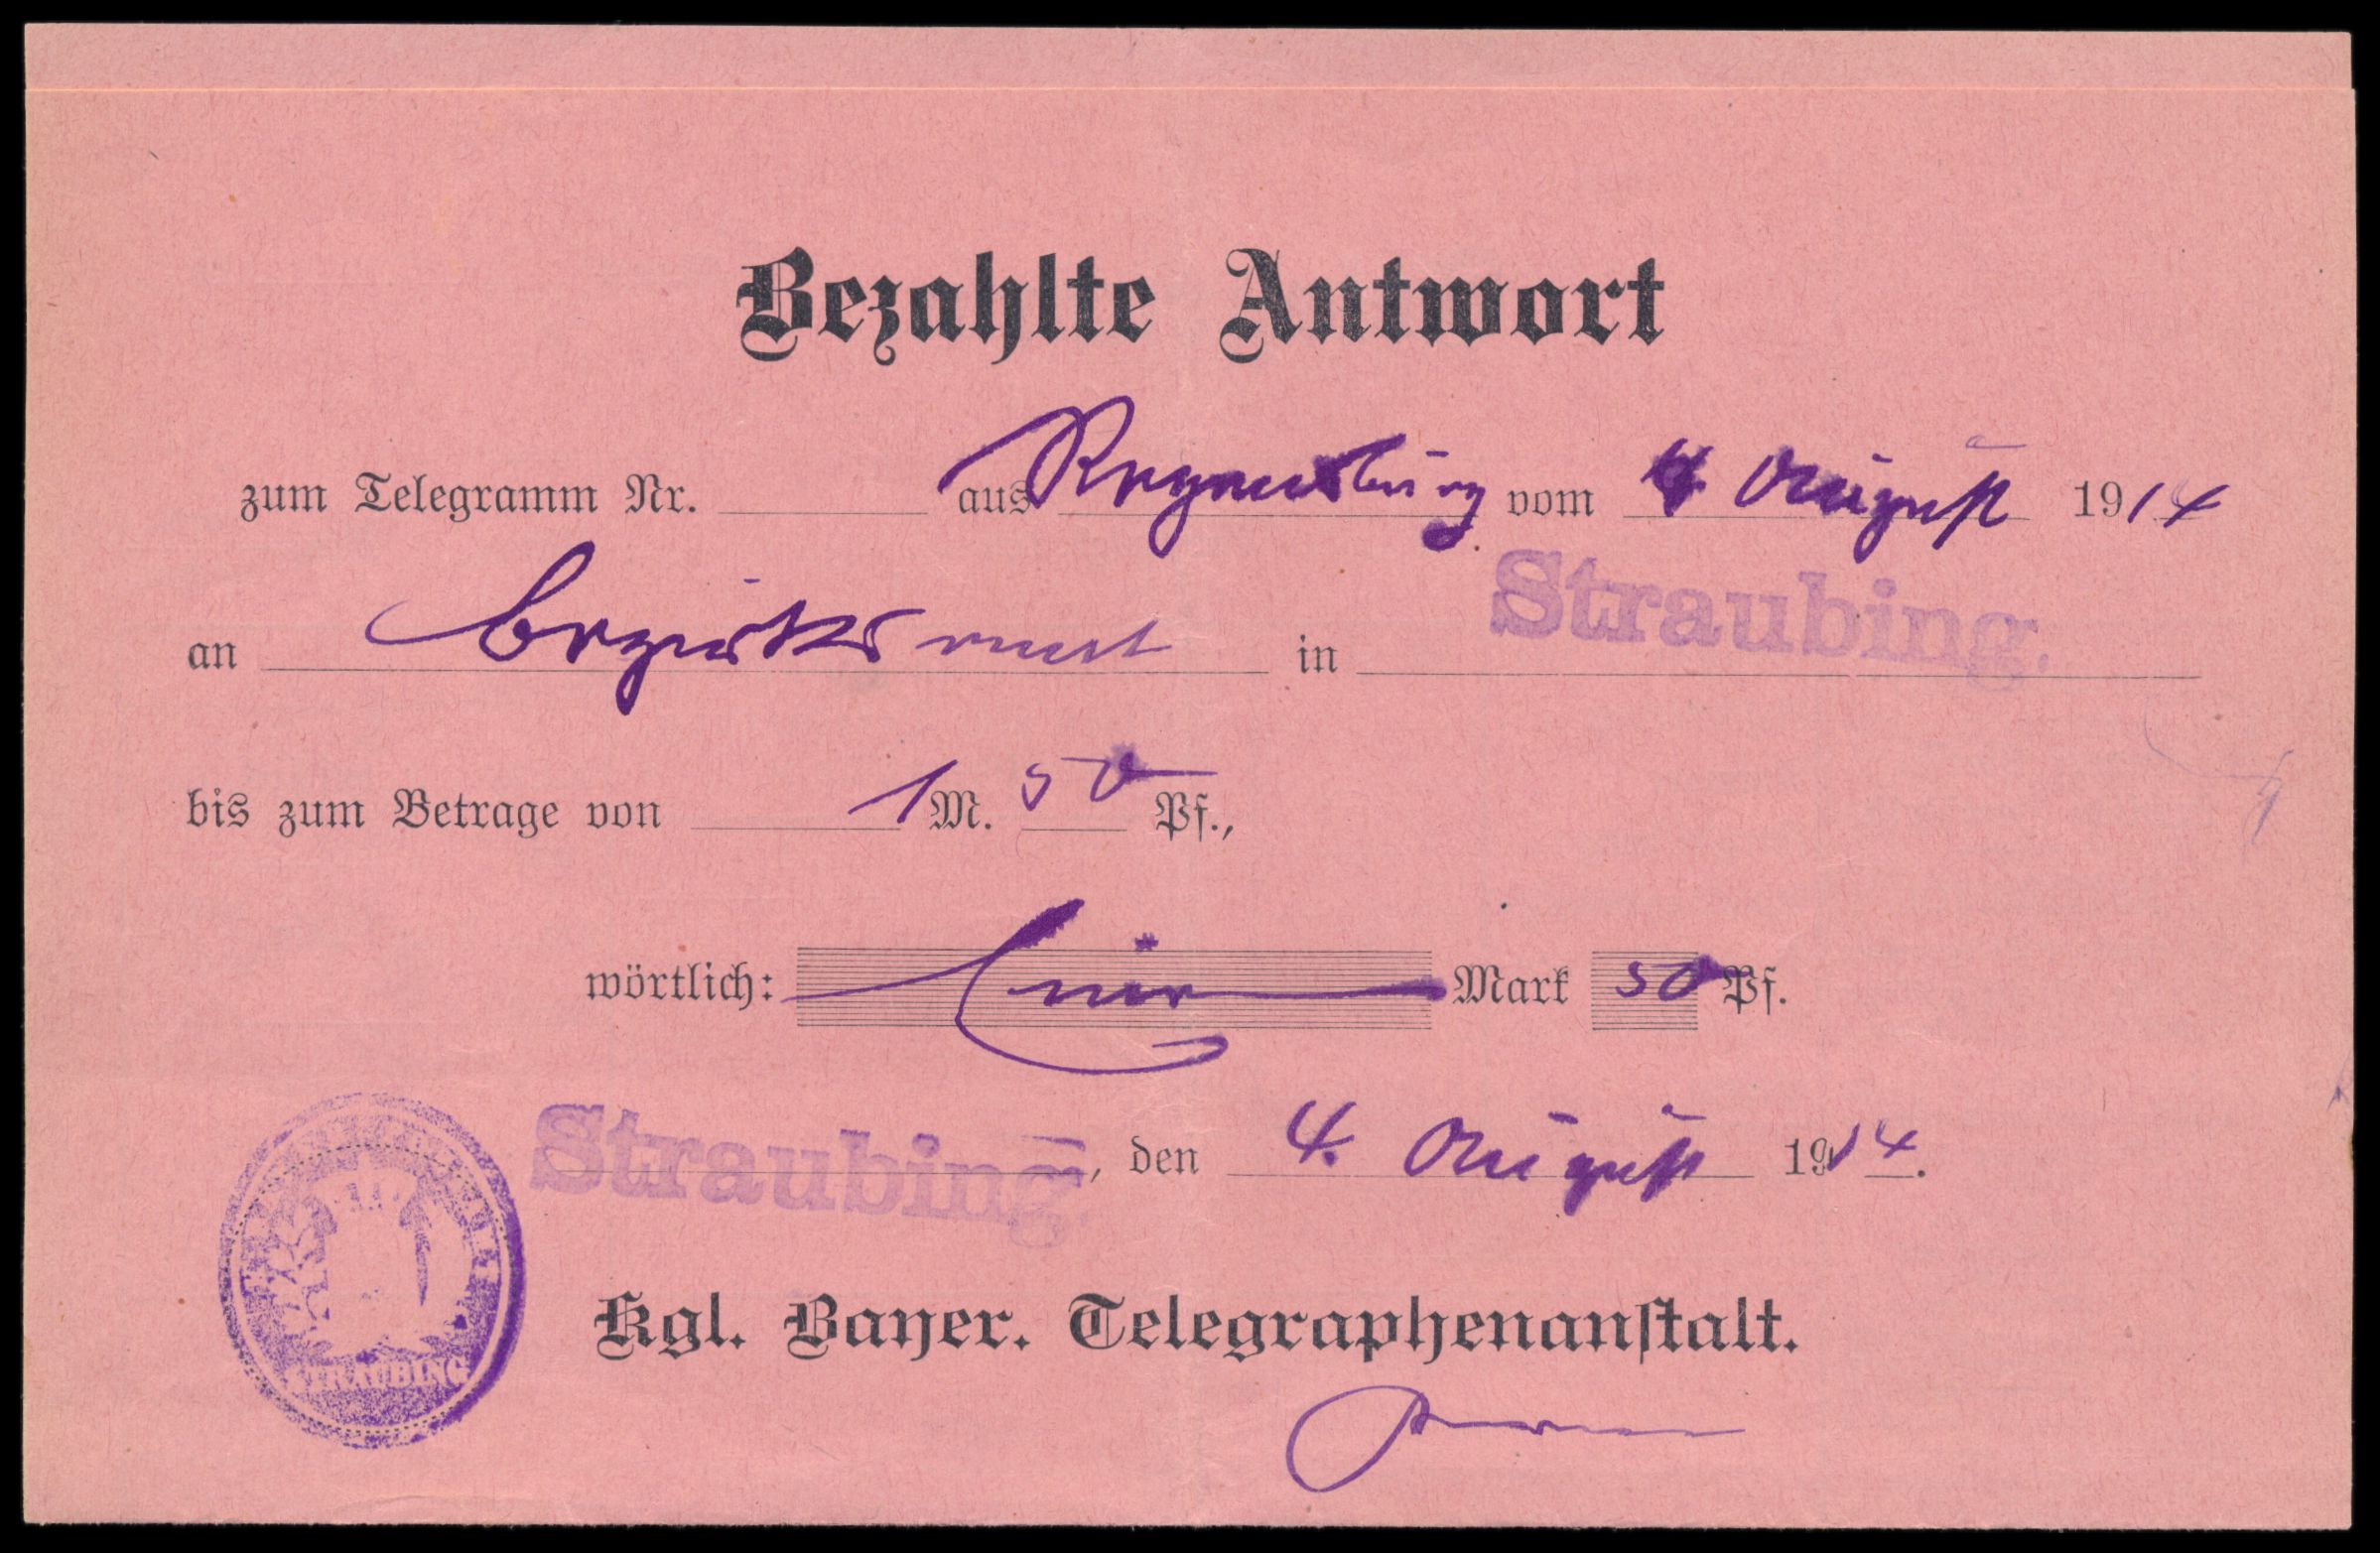 Bezahlte Antwort
zum Telegramm Nr. aus Regensburg vom 4 August 1914
an Bezirksamt in Straubing.
bis zum Betrage von 1 M. 50 Pf.,
wörtlich: Ein Mark 50 Pf.
Straubing, den 4. August 1914.
STRAUBING
Kgl. Bayer. Telegraphenanstalt.